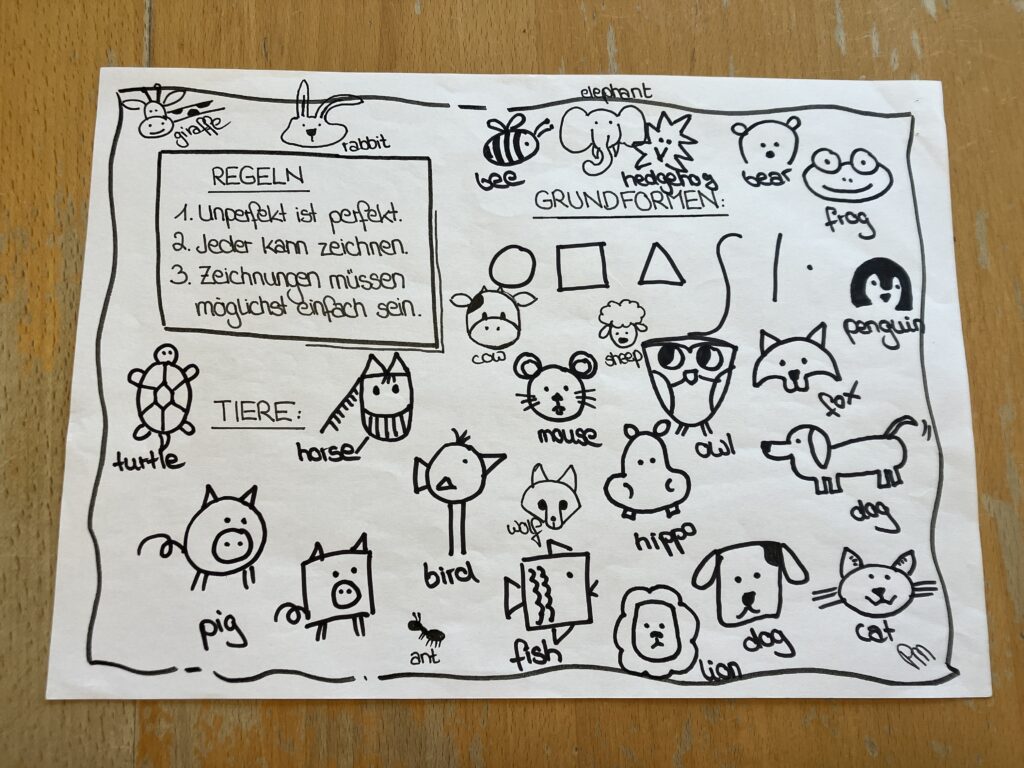 giraffe
rabbit
elephant
bee
hedgehog
bear
frog
REGELN
1. Unperfekt ist perfekt.
2. Jeder kann zeichnen.
3. Zeichnungen müssen
möglichst einfach sein.
GRUNDFORMEN:
penguin
cow
sheep
fox
TIERE:
turtle
horse
mouse
owl
wolf
hippo
dog
pig
bird
ant
fish
lion
dog
cat